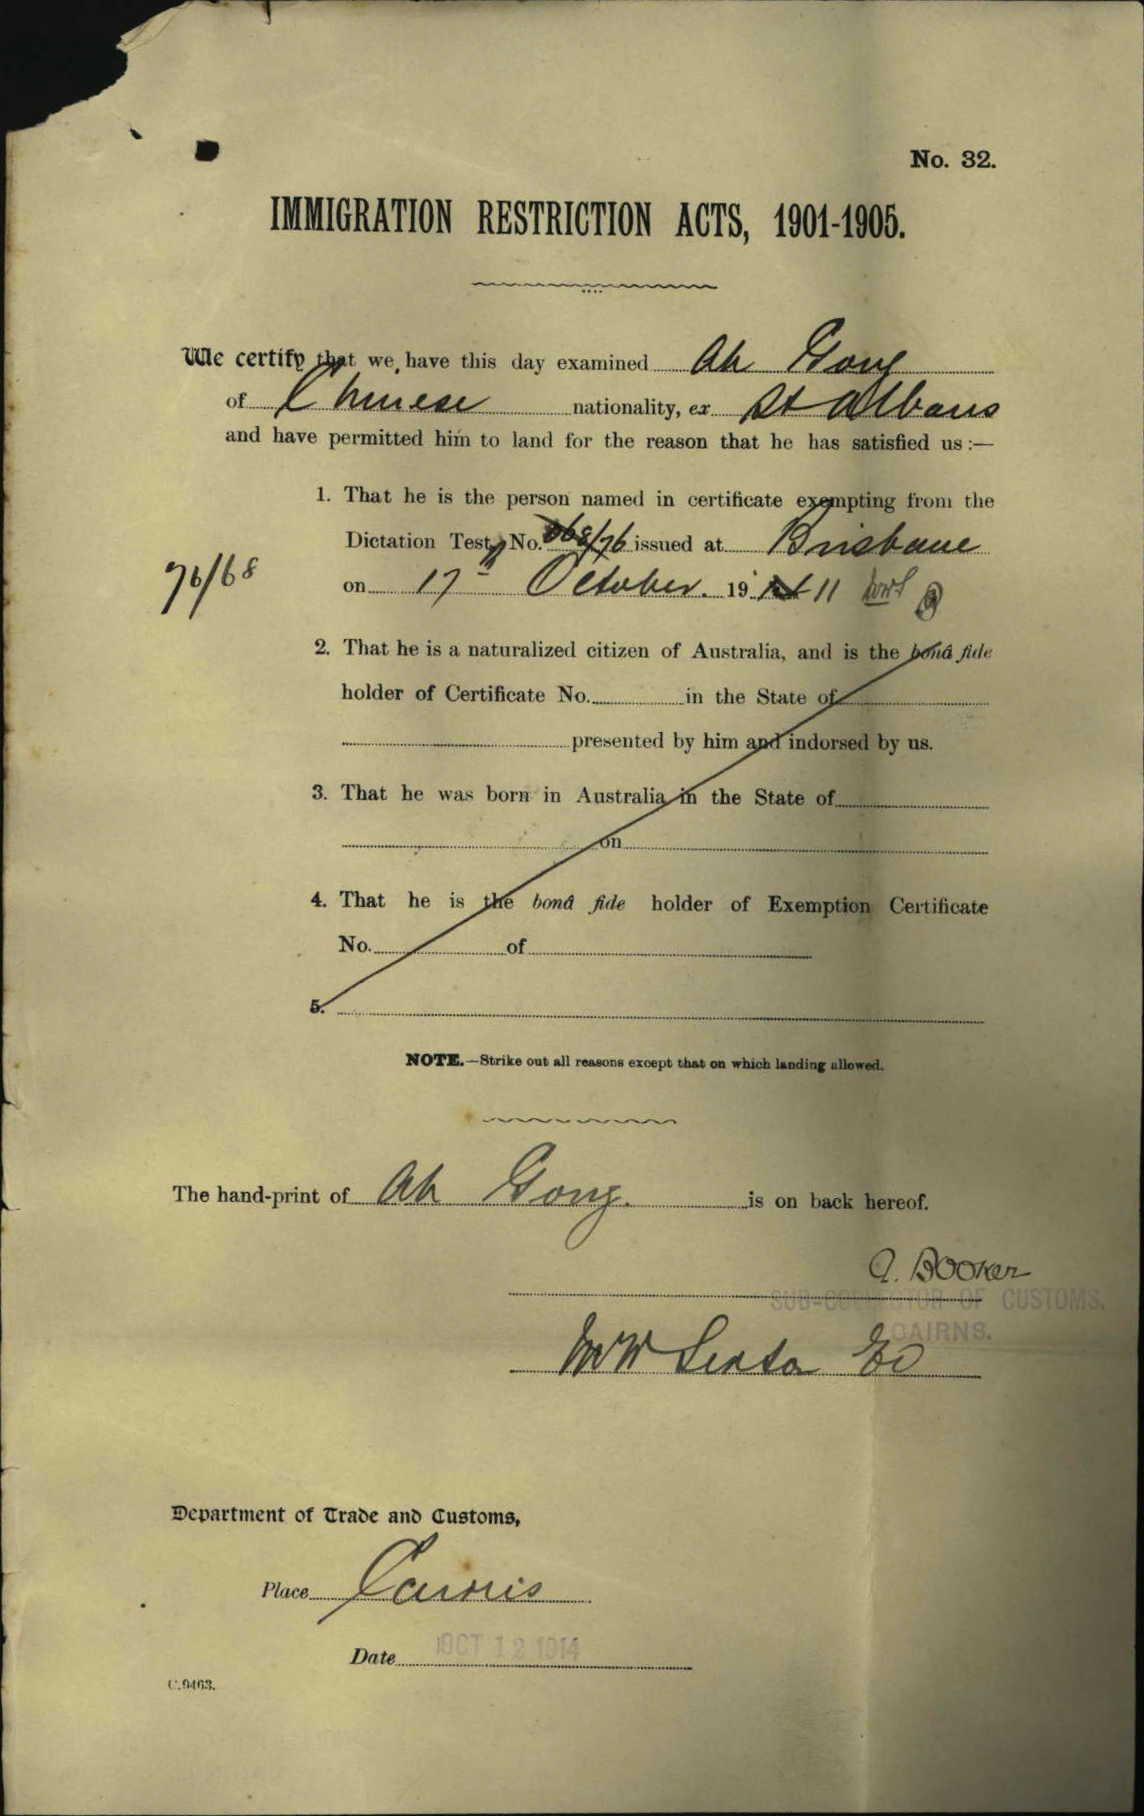 No. 32.
IMMIGRATION RESTRICTION ACTS, 1901-1905.
We certify that we have this day examined Ah Gong
of Chinese nationality, ex St Albans
and have permitted him to land for the reason that he has satisfied us :—
1. That he is the person named in certificate exempting from the
Dictation Test, No. 068/76 issued at Brisbane
76/68
on 17th October. 19 11
2. That he is a naturalized citizen of Australia, and is the bonâ fide
holder of Certificate No. in the State of
presented by him and indorsed by us.
3. That he was born in Australia in the State of
on
4. That he is the bonâ fide holder of Exemption Certificate
No. of
5.
NOTE.—Strike out all reasons except that on which landing allowed.
The hand-print of Ah Gong. is on back hereof.
A. Booker
SUB-COLLECTOR OF CUSTOMS,
CAIRNS.
Department of Trade and Customs,
Place Cairns
Date OCT 12 1914
C.9463.